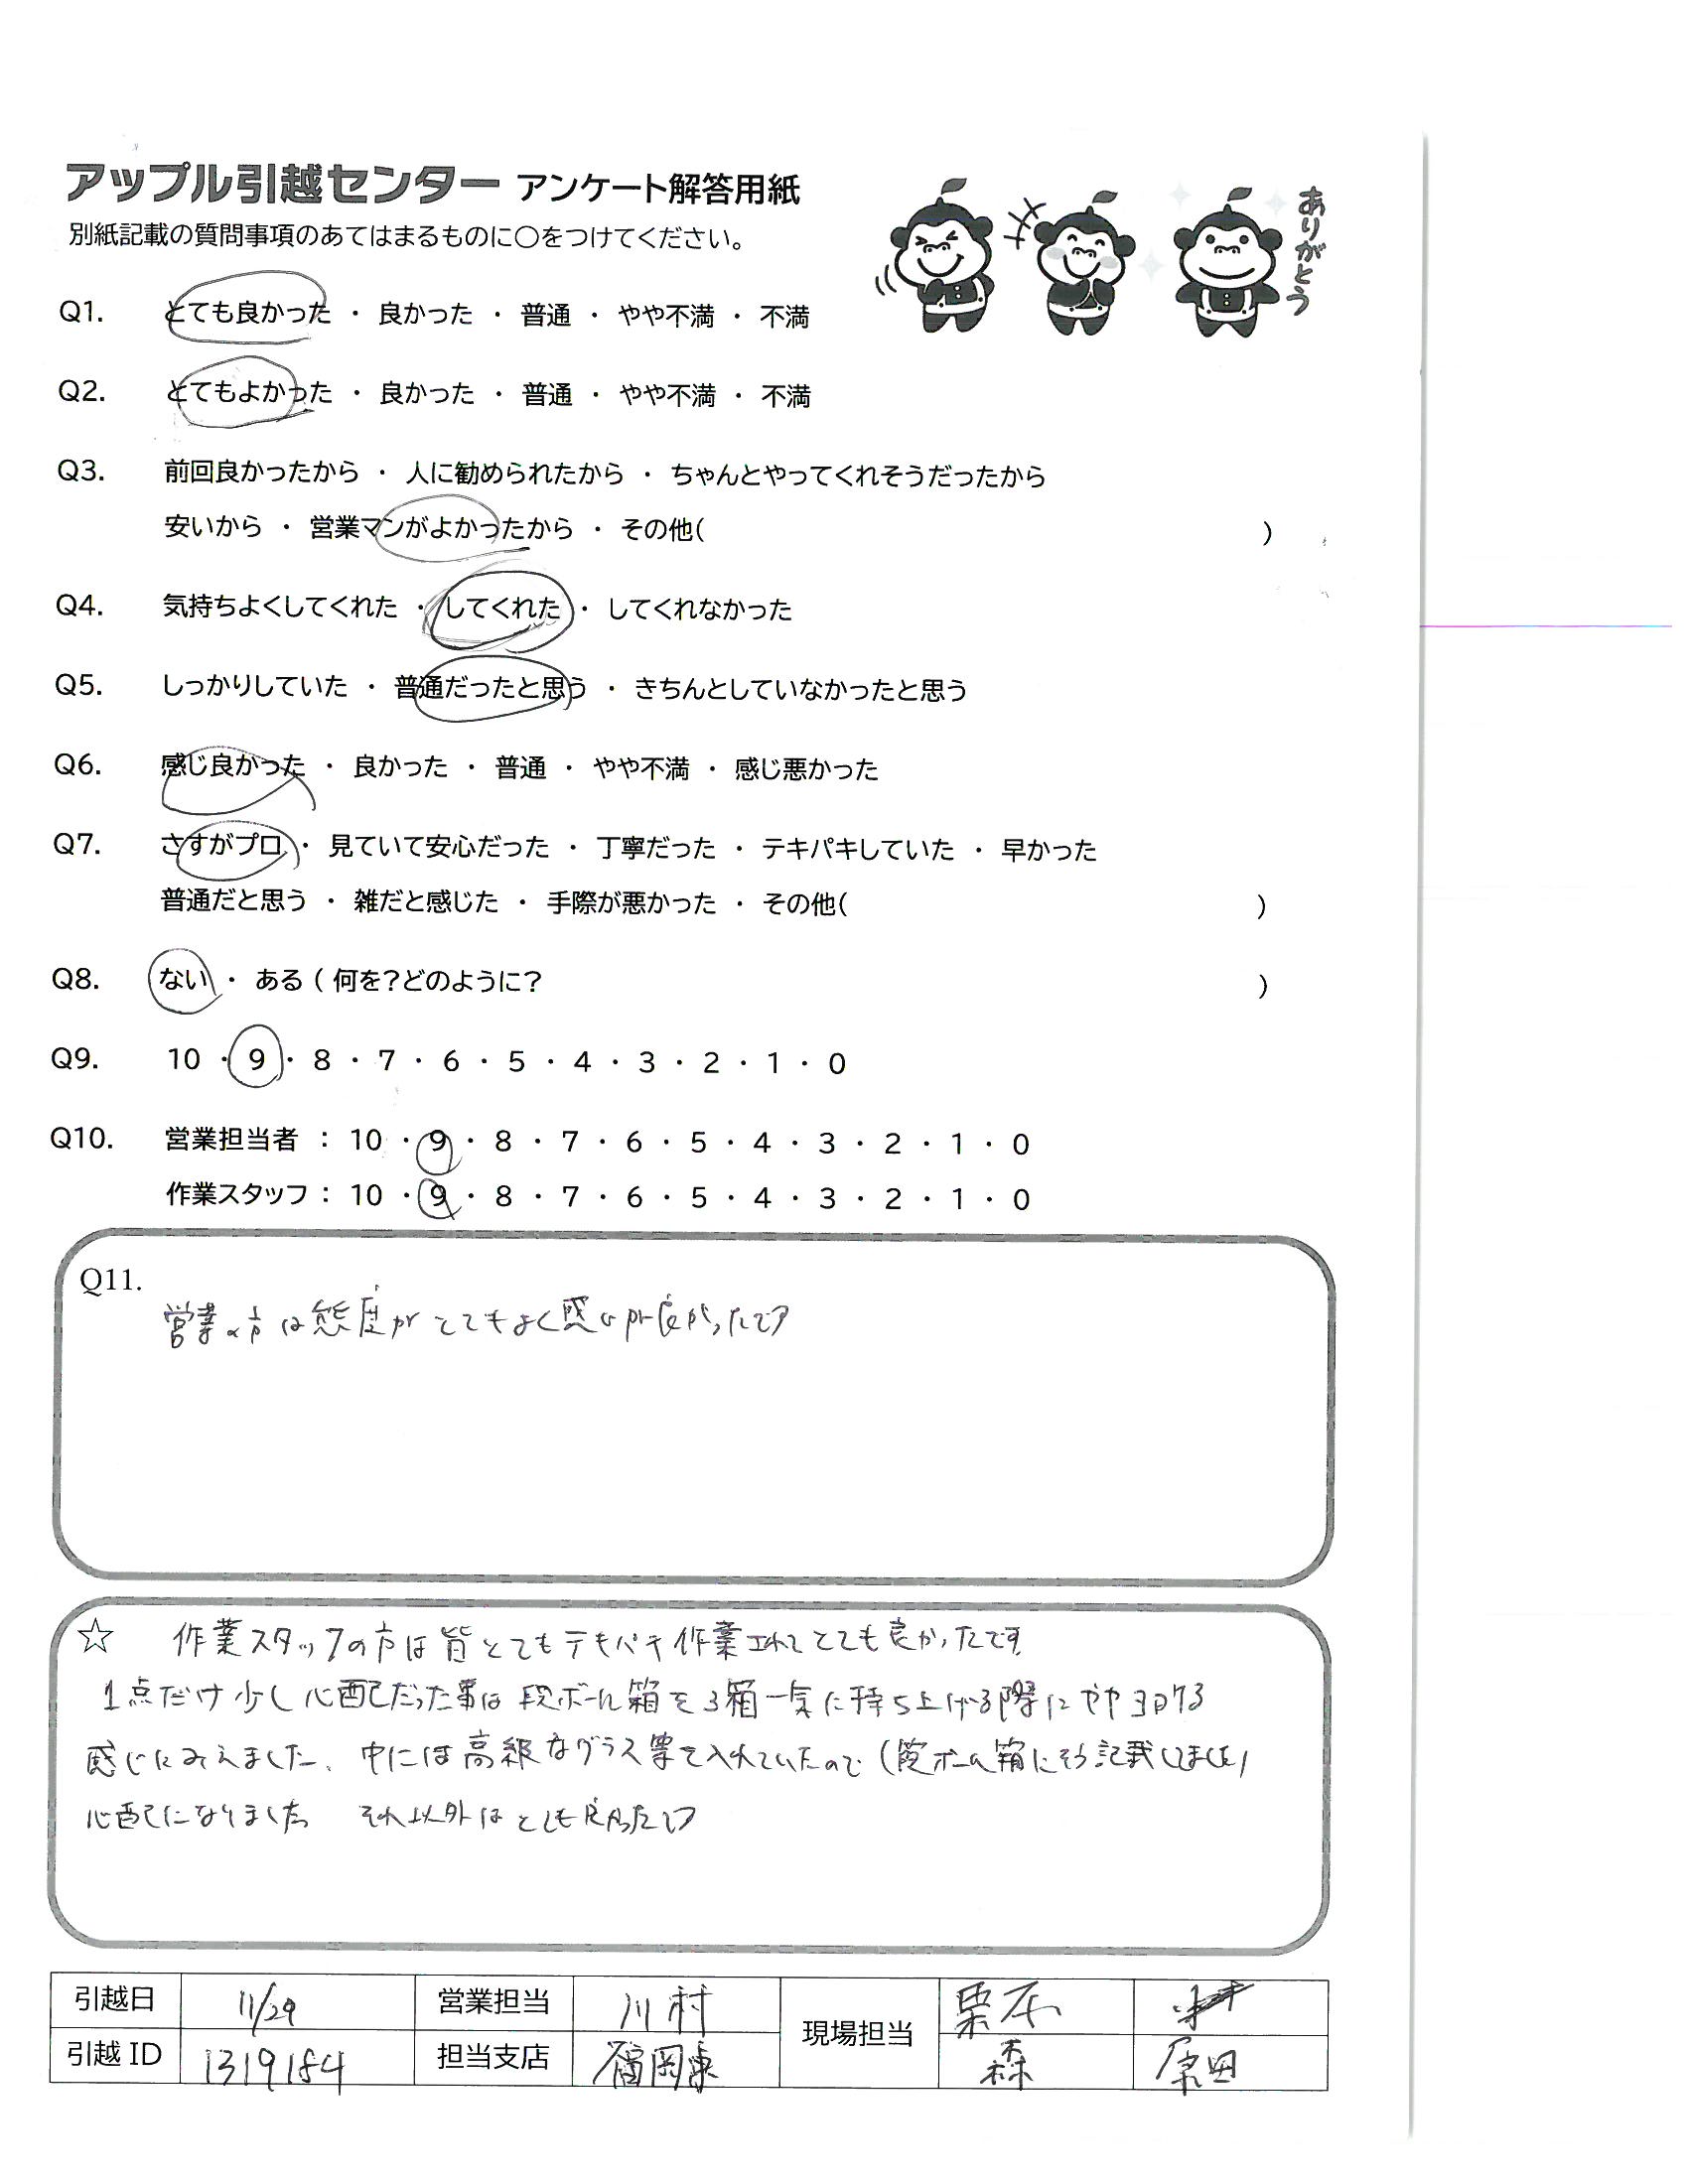 アップル引越センター アンケート解答用紙
ありがとう
別紙記載の質問事項のあてはまるものに〇をつけてください。
Q1. とても良かった ・ 良かった ・ 普通 ・ やや不満 ・ 不満
Q2. とてもよかった ・ 良かった ・ 普通 ・ やや不満 ・ 不満
Q3. 前回良かったから ・ 人に勧められたから ・ ちゃんとやってくれそうだったから
安いから ・ 営業マンがよかったから ・ その他( )
Q4. 気持ちよくしてくれた ・ してくれた ・ してくれなかった
Q5. しっかりしていた ・ 普通だったと思う ・ きちんとしていなかったと思う
Q6. 感じ良かった ・ 良かった ・ 普通 ・ やや不満 ・ 感じ悪かった
Q7. さすがプロ ・ 見ていて安心だった ・ 丁寧だった ・ テキパキしていた ・ 早かった
普通だと思う ・ 雑だと感じた ・ 手際が悪かった ・ その他( )
Q8. ない ・ ある ( 何を?どのように? )
Q9. 10 ・ 9 ・ 8 ・ 7 ・ 6 ・ 5 ・ 4 ・ 3 ・ 2 ・ 1 ・ 0
Q10. 営業担当者 : 10 ・ 9 ・ 8 ・ 7 ・ 6 ・ 5 ・ 4 ・ 3 ・ 2 ・ 1 ・ 0
作業スタッフ : 10 ・ 9 ・ 8 ・ 7 ・ 6 ・ 5 ・ 4 ・ 3 ・ 2 ・ 1 ・ 0
Q11.
営業の方は態度がとてもよく感じが良かったです
☆ 作業スタッフの方は皆とてもテキパキ作業されてとても良かったです
1点だけ少し心配だった事は段ボール箱を3箱一気に持ち上げる際にややヨロける
感じにみえました。中には高級なグラス等を入れていたので(段ボール箱にそう記載しました)
心配になりました それ以外はとても良かったです
引越日 11/29 営業担当 川村 現場担当 栗本
引越 ID 1319184 担当支店 福岡東 森 原田